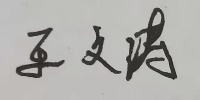 王文涛